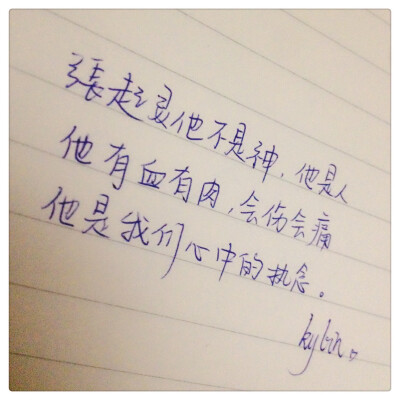 張起灵他不是神，他是人
他有血有肉，会伤会痛
他是我们心中的执念。
kylin。